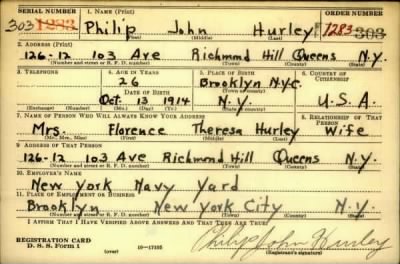 SERIAL NUMBER 1. NAME (Print) ORDER NUMBER
303 1233 Philip John Hurley 1283 303
(First) (Middle) (Last)
2. ADDRESS (Print)
126-12 103 Ave Richmond Hill Queens N.Y.
(Number and street or R. F. D. number) (Town) (County) (State)
3. TELEPHONE 4. AGE IN YEARS 5. PLACE OF BIRTH 6. COUNTRY OF CITIZENSHIP
26 Brooklyn N.Y.C.
DATE OF BIRTH (Town or county)
Oct. 13 1914 N.Y. U.S.A.
(Exchange) (Number) (Mo.) (Day) (Yr.) (State or country)
7. NAME OF PERSON WHO WILL ALWAYS KNOW YOUR ADDRESS 8. RELATIONSHIP OF THAT PERSON
Mrs. Florence Theresa Hurley Wife
(Mr., Mrs., Miss) (First) (Middle) (Last)
9. ADDRESS OF THAT PERSON
126-12 103 Ave Richmond Hill Queens N.Y.
(Number and street or R. F. D. number) (Town) (County) (State)
10. EMPLOYER'S NAME
New York Navy Yard
11. PLACE OF EMPLOYMENT OR BUSINESS
Brooklyn New York City N.Y.
(Number and street or R. F. D. number) (Town) (County) (State)
I AFFIRM THAT I HAVE VERIFIED ABOVE ANSWERS AND THAT THEY ARE TRUE.
REGISTRATION CARD
D. S. S. Form 1 (over) 16—17105 Philip John Hurley
(Registrant's signature)